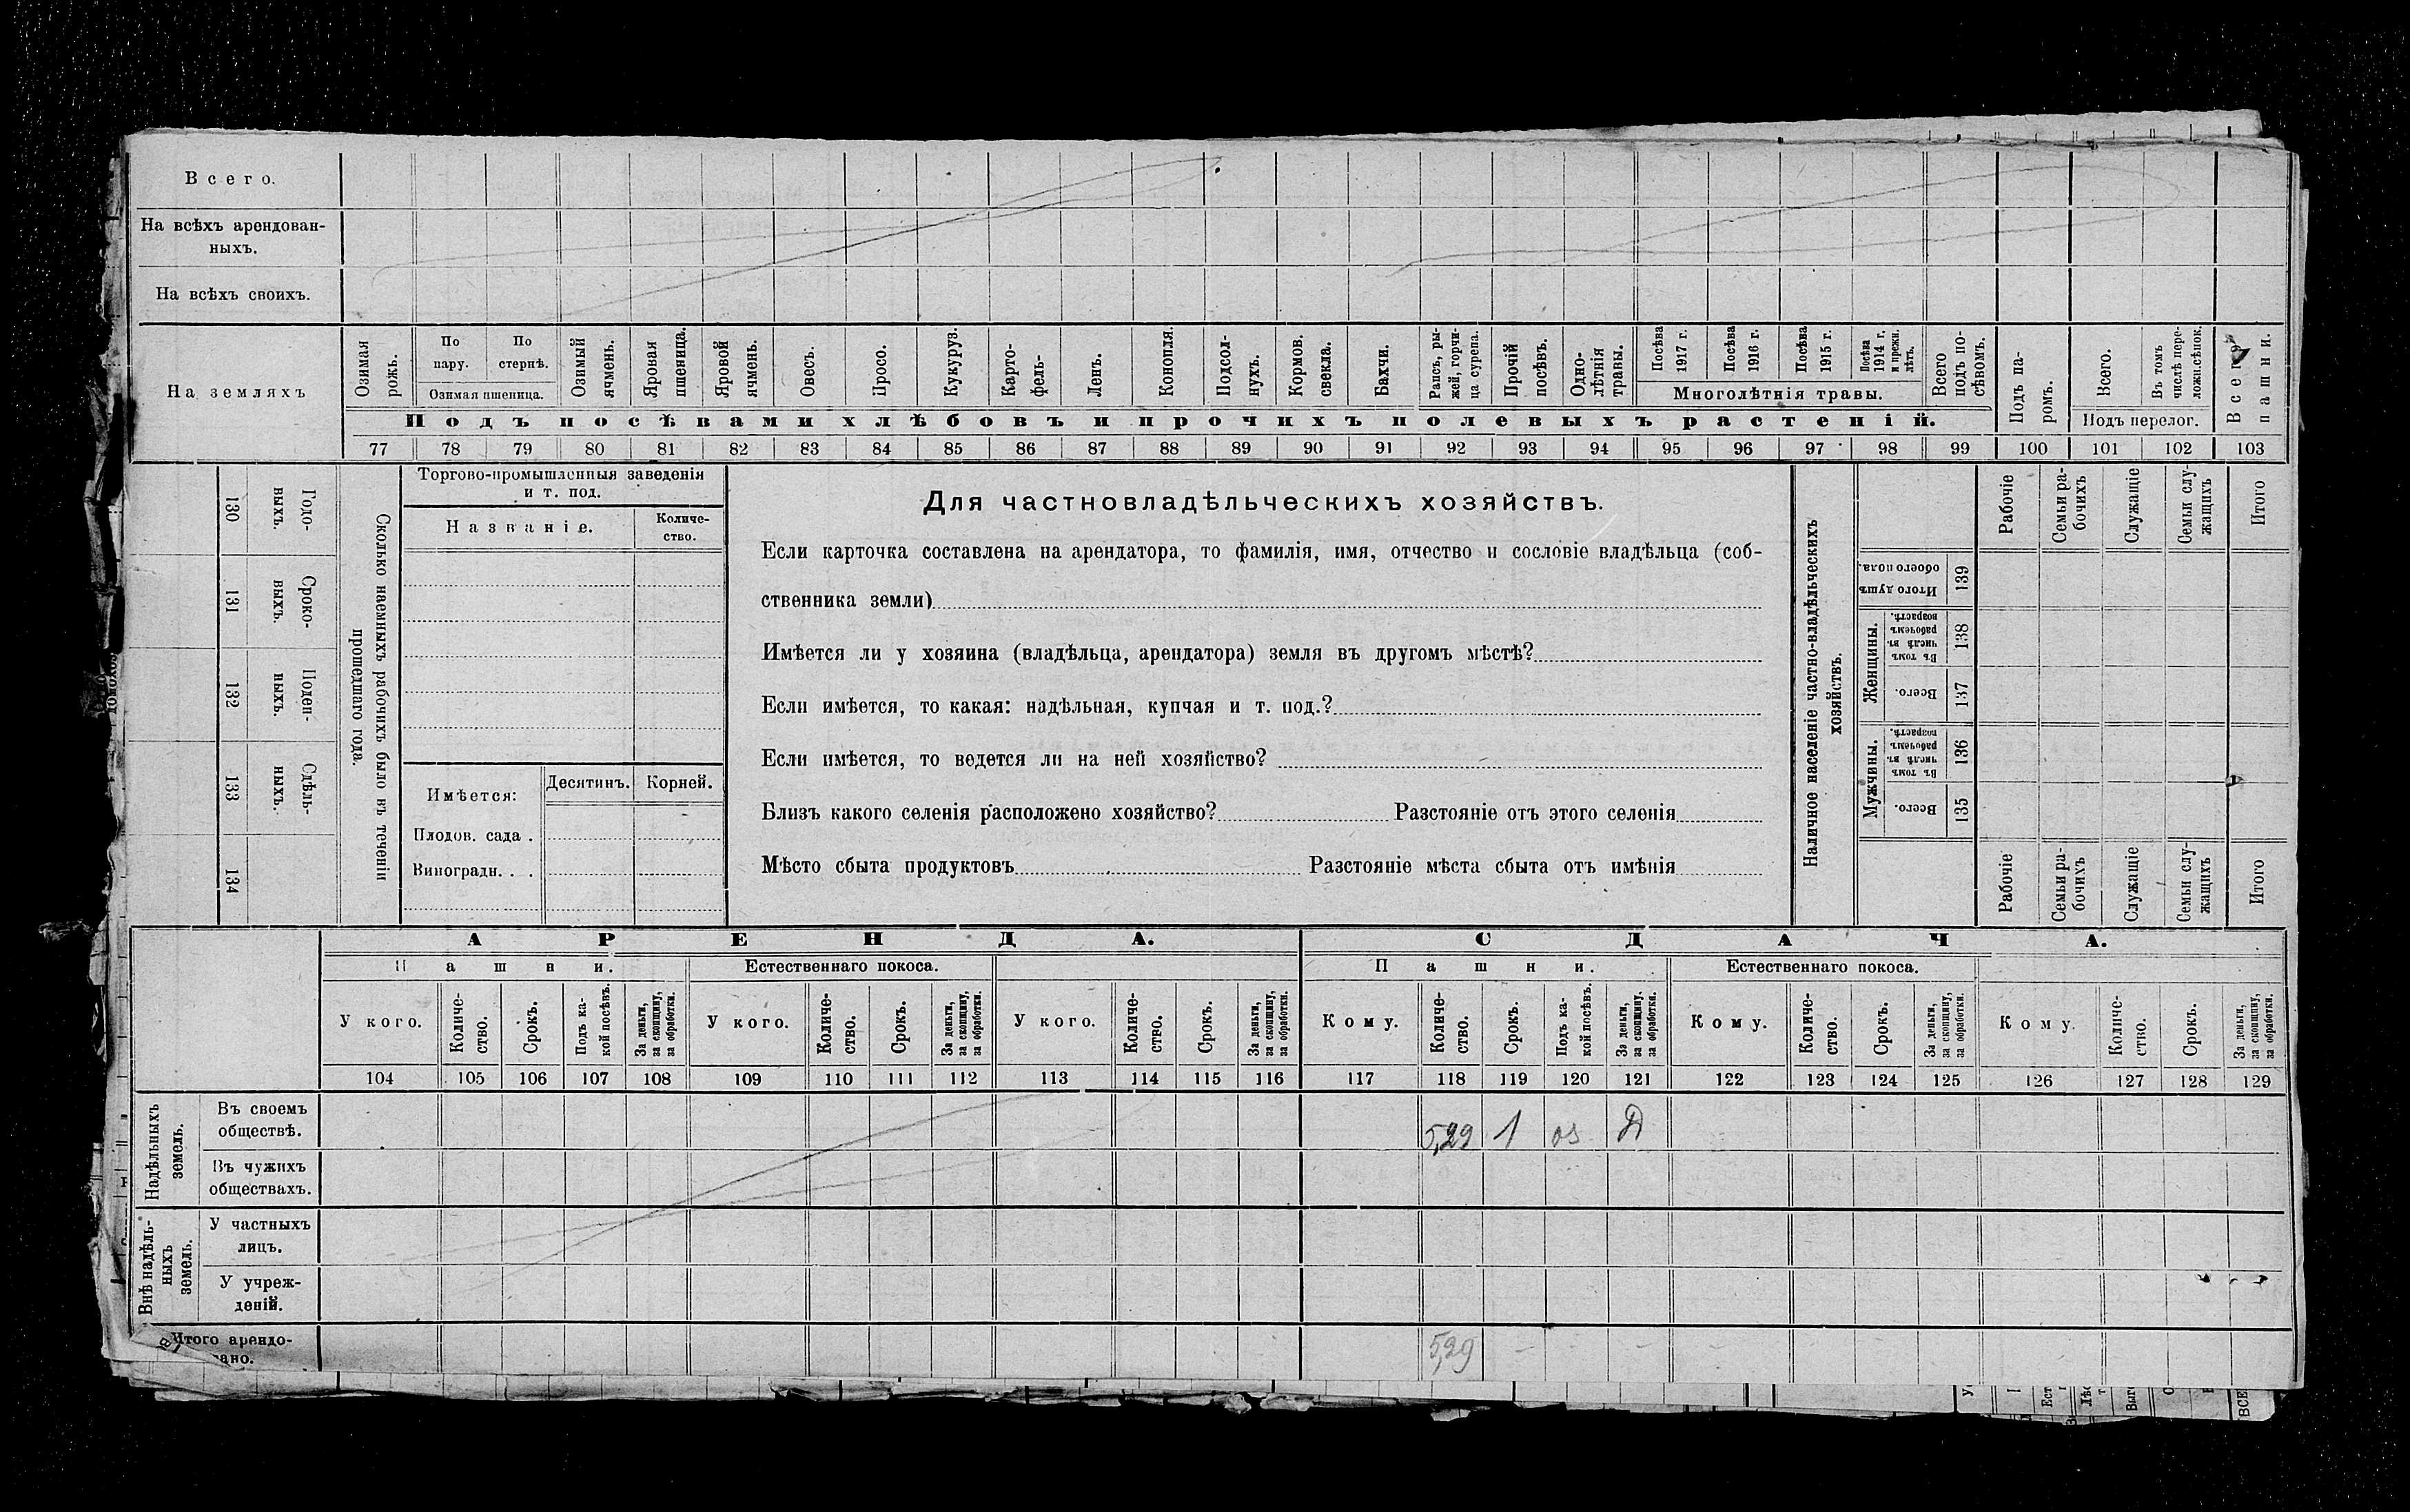 Всего.
На всѣхъ арендован-
ныхъ.
На всѣхъ своихъ.
На земляхъ
Озимая рожь.
По пару.
По стернѣ.
Озимая пшеница.
Озимый ячмень.
Яровая пшеница.
Яровой ячмень.
Овесъ.
Просо.
Кукуруз.
Карто-
фель-
Ленъ.
Конопля.
Подсол-
нухъ.
Кормов.
свекла.
Бахчи.
Рапсъ, ры-
жей, горчи-
ца сурепа.
Прочій
посѣвъ.
Одно-
лѣтнія
травы.
Посѣва 1917 г.
Посѣва 1916 г.
Посѣва 1915 г.
Посѣва 1914 г. и прежн. лѣтъ.
Многолѣтнія травы.
Всего подъ по-
сѣвомъ.
Подъ посѣвами хлѣбовъ и прочихъ полевыхъ растеній.
Подъ па-
ромъ.
Всего.
Въ томъ числѣ пере-
ложн.сѣнок.
Подъ перелог.
Всего пашни.
77 78 79 80 81 82 83 84 85 86 87 88 89 90 91 92 93 94 95 96 97 98 99 100 101 102 103
130 Годо-
выхъ.
131 Сроко-
выхъ.
132 Поден-
ныхъ.
133 Сдѣль-
ныхъ.
134
Сколько наемныхъ рабочихъ было въ теченіи
прошедшаго года.
Торгово-промышленныя заведенія
и т. под.
Названіе.
Количе-
ство.
Имѣется:
Десятинъ.
Корней.
Плодов. сада .
Виноградн. . .
Для частновладѣльческихъ хозяйствъ.
Если карточка составлена на арендатора, то фамилія, имя, отчество и сословіе владѣльца (соб-
ственника земли)
Имѣется ли у хозяина (владѣльца, арендатора) земля въ другомъ мѣстѣ?
Если имѣется, то какая: надѣльная, купчая и т. под.?
Если имѣется, то ведется ли на ней хозяйство?
Близъ какого селенія расположено хозяйство? Разстояніе отъ этого селенія
Мѣсто сбыта продуктовъ Разстояніе мѣста сбыта отъ имѣнія
Наличное населеніе частно-владѣльческихъ
хозяйствъ.
Рабочіе
Семьи ра-
бочихъ
Служащіе
Семьи слу-
жащихъ
Итого
Итого душъ обоего пола. 139
Женщины.
Въ томъ числѣ въ рабочемъ возрастѣ. 138
Всего. 137
Мужчины.
Въ томъ числѣ въ рабочемъ возрастѣ. 136
Всего. 135
Рабочіе
Семьи ра-
бочихъ
Служащіе
Семьи слу-
жащихъ
Итого
АРЕНДА.
СДАЧА.
Пашни.
Естественнаго покоса.
Пашни.
Естественнаго покоса.
У кого.
Количе-
ство.
Срокъ.
Подъ ка-
кой посѣвъ.
За деньги,
за скопщину,
за обработки.
У кого.
Количе-
ство.
Срокъ.
За деньги,
за скопщину,
за обработки.
У кого.
Количе-
ство.
Срокъ.
За деньги,
за скопщину,
за обработки.
Кому.
Количе-
ство.
Срокъ.
Подъ ка-
кой посѣвъ.
За деньги,
за скопщину,
за обработки.
Кому.
Количе-
ство.
Срокъ.
За деньги,
за скопщину,
за обработки.
Кому.
Количе-
ство.
Срокъ.
За деньги,
за скопщину,
за обработки.
104 105 106 107 108 109 110 111 112 113 114 115 116 117 118 119 120 121 122 123 124 125 126 127 128 129
Надѣльныхъ
земель.
Въ своемъ
обществѣ.
5,29 1 оз Д
Въ чужихъ
обществахъ.
Внѣ надѣль-
ныхъ
земель.
У частныхъ
лицъ.
У учреж-
деній.
Итого арендо-
вано.
5,29 - - -